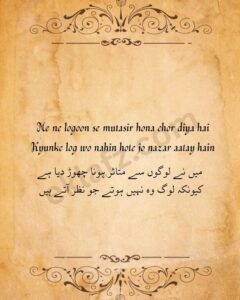 Me ne logoon se mutasir hona chor diya hai
Kyunke log wo nahin hote jo nazar aatay hain
میں نے لوگوں سے متاثر ہونا چھوڑ دیا ہے
کیونکہ لوگ وہ نہیں ہوتے جو نظر آتے ہیں